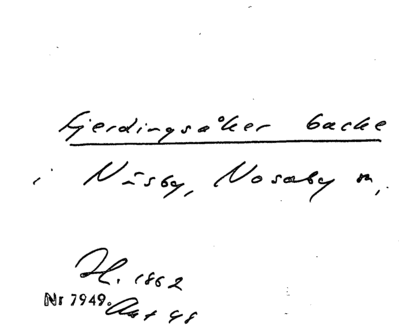 Fjerdingsåker backe
i Näsby, Nosaby m,
H. 1862
Nr 7949. Akt 48